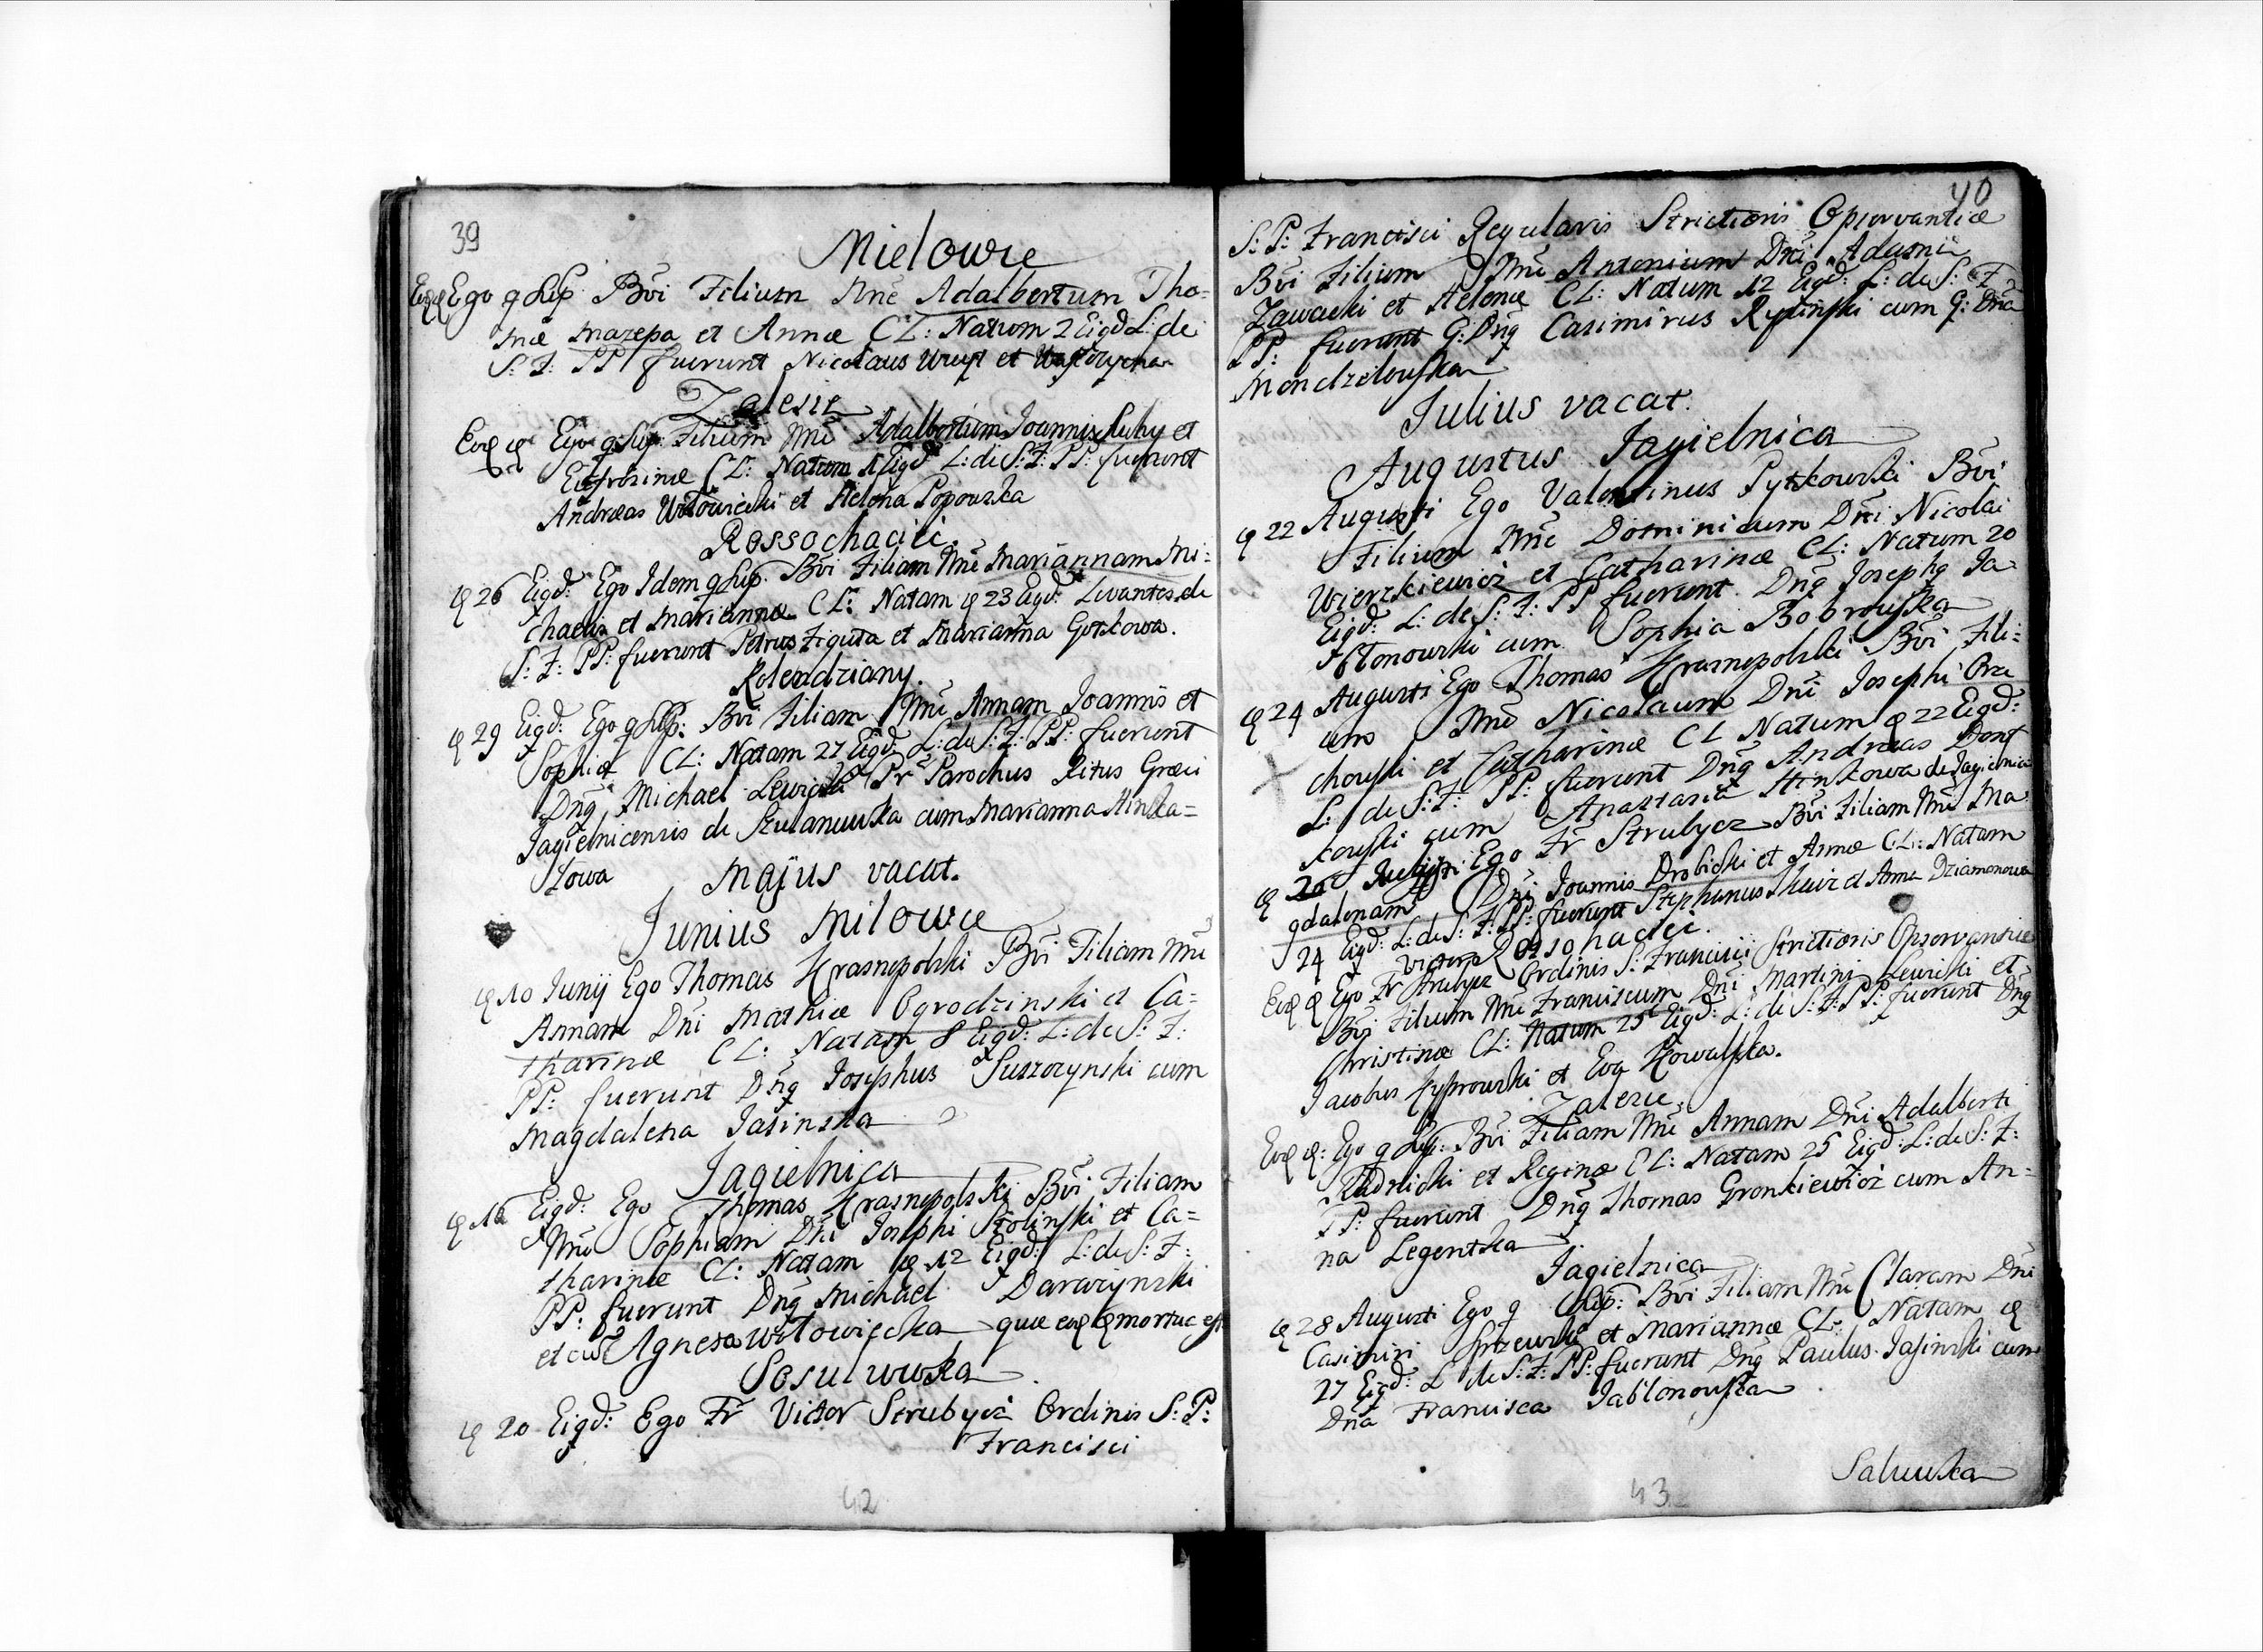 39
Mielowce
Ego q Sup. Bvi Filium Nne Adalbertum Tho=
mæ Mazepa et Annæ CL: Natum 2 Eigd L: de
S: F: PP fuerunt Nicolaus et
Zalesie
Ego q Sup: Filium Nne Adalbertum Joannis Luky et
Eufrosinæ CL: Natum 1 Eigd L: de S: F: PP: fuerunt
Andreas Witowiecki et Helena Popowska
Rossochacie.
26 Eigd: Ego Idem q Sup. Bvi Filiam Nne Mariannam Mi=
chaelis et Mariannæ CL: Natam 23 Eigd: Levantes de
S: F: PP: fuerunt Petrus Figura et Marianna Gorkowa.
Kolendziany.
29 Eigd: Ego q Sup: Bvi Filiam Nne Annam Joannis et
Sophiæ CL: Natam 27 Eigd: L: de S: F: PP: fuerunt
Dnq Michael Lewicki Pr Parochus Ritus Græci
Jagielnicensis de Szulanuwka cum Marianna Hinka=
lowa
Majus vacat.
Junius Milowce
10 Junij Ego Thomas Krasnopolski Bvi Filiam Nne
Annam Dni Mathiæ Ogrodzinski et Ca=
tharinæ CL: Natam 8 Eigd: L: de S: F:
PP: fuerunt Dnq Josephus Suszczynski cum
Magdalena Jasinska
Jagielnica
16 Eigd: Ego Thomas Krasnopolski Bvi Filiam
Nne Sophiam Dni Josephi Stolinski et Ca=
tharinæ CL: Natam 12 Eigd: L: de S: F:
PP: fuerunt Dnq Michael Daraczynski
et Agnesa Witowiecka quæ mortua est
Sosuluwka
20 Eigd: Ego Fr Victor Strubycz Ordinis S: P:
Francisci
42
40
S: P: Francisci Regularis Strictioris Opservantiæ
Bvi Filium Nne Antonium Dni Adami
Zawacki et Helenæ CL: Natum 12 Eigd: L: de S: F
PP: fuerunt G: Dnq Casimirus Rylinski cum G: Dna
Mondzelouska
Julius vacat.
Augustus Jagielnica
22 Augusti Ego Valentinus Pytkowski Bvi
Filium Nne Dominicum Dni Nicolai
Wierzkiewicz et Catharinæ CL: Natum 20
Eigd: L: de S: F: PP fuerunt Dnq Josephq Ja=
blonowski cum Sophia Bobrouska
24 Augusti Ego Thomas Krasnopolski Bvi Fili=
um Nne Nicolaum Dni Josephi Orze
chouski et Catharinæ CL Natum 22 Eigd:
L: de S: F: PP: fuerunt Dnq Andreas Dom
kouski cum Anastasia Hinkowa de Jagielnica
Ego Fr Strubycz Bvi Filiam Nne Ma
gdalenam Dni Joannis Drobicki et Annæ CL: Natam
24 Eigd: L: de S: F: PP: fuerunt Stephanus et Anna Dziamonowa
Victor Rossohacie.
Ego Fr Strubycz Ordinis S: Francisci Strictioris Opservantiæ
Bvi Filium Nne Franciscum Dni Martini Lewicki et
Christinæ CL: Natum 25 Eigd: L: de S: F: PP: fuerunt Dnq
Jacobus Kyprowski et Eva Kowalska.
Zalezie
Ego q Sup: Bvi Filiam Nne Annam Dni Adalberti
Rudnicki et Reginæ CL: Natam 25 Eigd: L: de S: F:
PP: fuerunt Dnq Thomas Gronkiewicz cum An=
na Legentska
Jagielnica
28 Augusti Ego q Sup: Bvi Filiam Nne Claram Dni
Casimiri et Mariannæ CL: Natam
27 Eigd: L de S: F: PP: fuerunt Dnq Paulus Jasinski cum
Dna Francisca Jablonouska
Saluwka
43